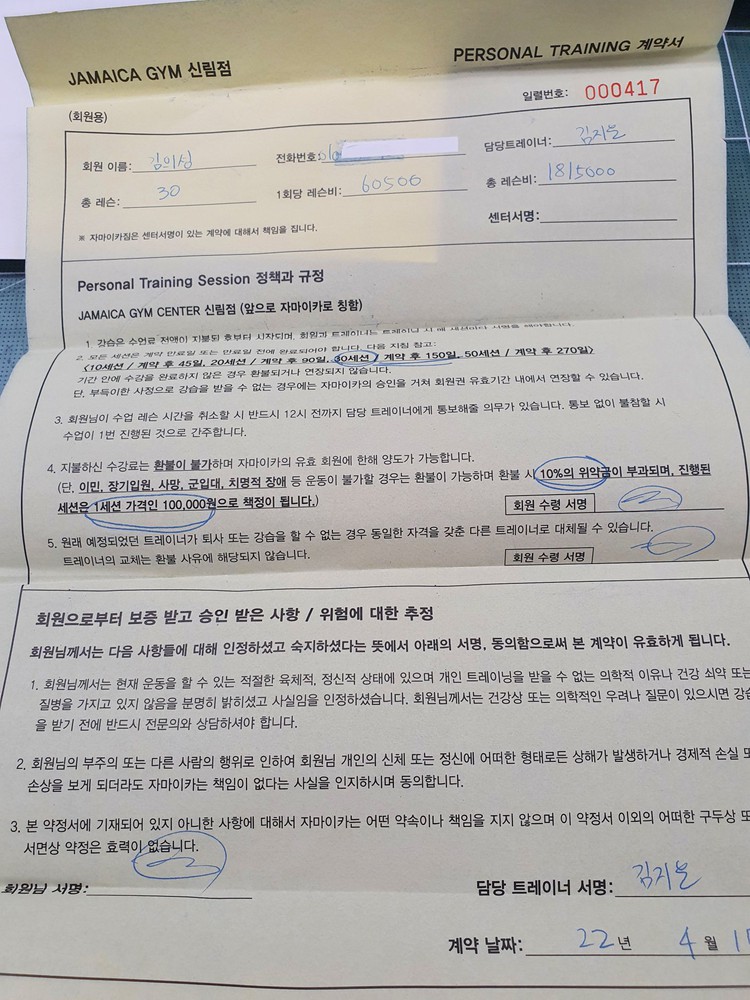 JAMAICA GYM 신림점
PERSONAL TRAINING 계약서
일렬번호: 000417
(회원용)
회원 이름: 김의성 전화번호: 010 담당트레이너: 김지운
총 레슨: 30 1회당 레슨비: 60500 총 레슨비: 1815000
센터서명:
※ 자마이카짐은 센터서명이 있는 계약에 대해서 책임을 집니다.
Personal Training Session 정책과 규정
JAMAICA GYM CENTER 신림점 (앞으로 자마이카로 칭함)
1. 강습은 수업료 전액이 지불된 후부터 시작되며, 회원과 트레이너는 트레이닝 시 매 세션마다 서명을 해야합니다.
2. 모든 세션은 계약 만료일 또는 만료일 전에 완료되어야 합니다. 다음 지침 참고:
<10세션 / 계약 후 45일, 20세션 / 계약 후 90일, 30세션 / 계약 후 150일, 50세션 / 계약 후 270일>
기간 안에 수강을 완료하지 않은 경우 환불되거나 연장되지 않습니다.
단, 부득이한 사정으로 강습을 받을 수 없는 경우에는 자마이카의 승인을 거쳐 회원권 유효기간 내에서 연장할 수 있습니다.
3. 회원님이 수업 레슨 시간을 취소할 시 반드시 12시 전까지 담당 트레이너에게 통보해줄 의무가 있습니다. 통보 없이 불참할 시
수업이 1번 진행된 것으로 간주합니다.
4. 지불하신 수강료는 환불이 불가하며 자마이카의 유효 회원에 한해 양도가 가능합니다.
(단, 이민, 장기입원, 사망, 군입대, 치명적 장애 등 운동이 불가할 경우는 환불이 가능하며 환불 시 10%의 위약금이 부과되며, 진행된
세션은 1세션 가격인 100,000원으로 책정이 됩니다.)
회원 수령 서명
5. 원래 예정되었던 트레이너가 퇴사 또는 강습을 할 수 없는 경우 동일한 자격을 갖춘 다른 트레이너로 대체될 수 있습니다.
트레이너의 교체는 환불 사유에 해당되지 않습니다.
회원 수령 서명
회원으로부터 보증 받고 승인 받은 사항 / 위험에 대한 추정
회원님께서는 다음 사항들에 대해 인정하셨고 숙지하셨다는 뜻에서 아래의 서명, 동의함으로써 본 계약이 유효하게 됩니다.
1. 회원님께서는 현재 운동을 할 수 있는 적절한 육체적, 정신적 상태에 있으며 개인 트레이닝을 받을 수 없는 의학적 이유나 건강 쇠약 또는
질병을 가지고 있지 않음을 분명히 밝히셨고 사실임을 인정하셨습니다. 회원님께서는 건강상 또는 의학적인 우려나 질문이 있으시면 강습
을 받기 전에 반드시 전문의와 상담하셔야 합니다.
2. 회원님의 부주의 또는 다른 사람의 행위로 인하여 회원님 개인의 신체 또는 정신에 어떠한 형태로든 상해가 발생하거나 경제적 손실 또
손상을 보게 되더라도 자마이카는 책임이 없다는 사실을 인지하시며 동의합니다.
3. 본 약정서에 기재되어 있지 아니한 사항에 대해서 자마이카는 어떤 약속이나 책임을 지지 않으며 이 약정서 이외의 어떠한 구두상 또
서면상 약정은 효력이 없습니다.
회원님 서명:
담당 트레이너 서명: 김지운
계약 날짜: 22년 4월